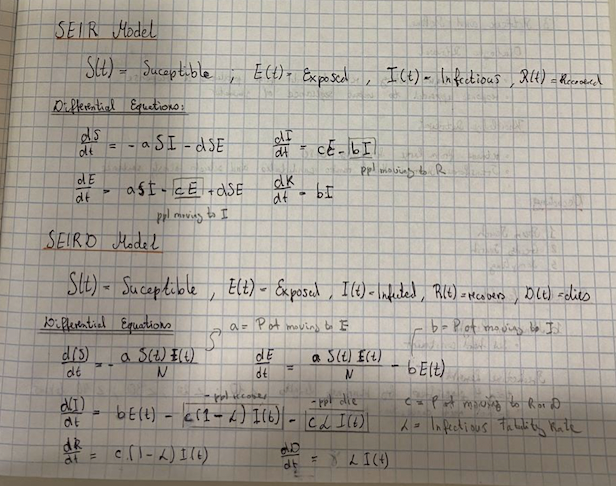 SEIR Model
S(t) = Suceptible ; E(t) - Exposed , I(t) - Infectious , R(t) = Recovered
Differential Equations:
dS/dt = - a S I - d S E
dI/dt = cE - bI
ppl moving to R
dE/dt = a S I - cE + d S E
dR/dt = bI
ppl moving to I
SEIRD Model
S(t) = Suceptible , E(t) = Exposed , I(t) = Infected , R(t) = recovers , D(t) = dies
Differential Equations
a = P of moving to E
b = P of moving to I
d(S)/dt = - a S(t) I(t)/N
dE/dt = a S(t) I(t)/N - bE(t)
- ppl recover
- ppl die
c = P of moving to R or D
d(I)/dt = bE(t) - c(1 - α) I(t) - cα I(t)
α = Infectious Fatality Rate
dR/dt = c.(1 - α) I(t)
dD/dt = α I(t)